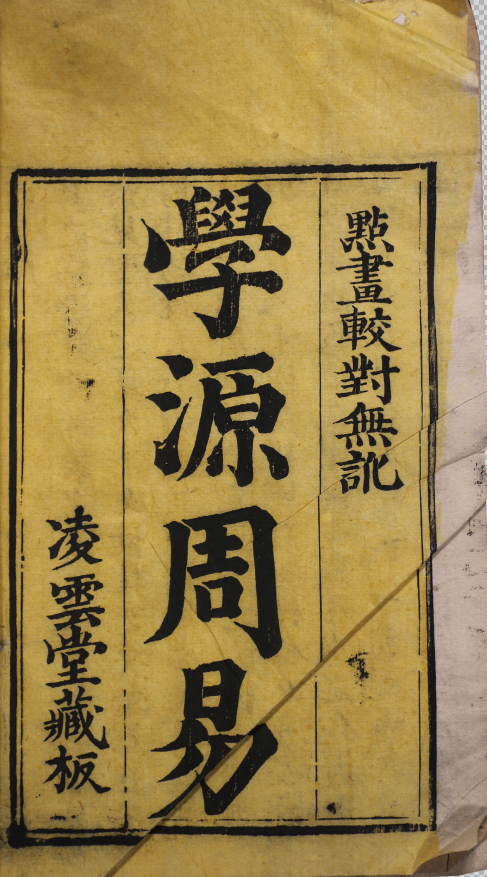 點畫較對無訛
學源周易
凌雲堂藏板